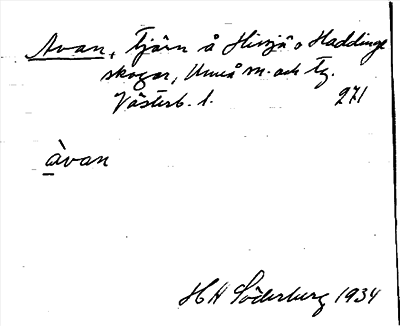 Avan, tjärn å Hissjö o Haddinge
skogar, Umeå m. och tg.
Västerb. l. 271
àvan
H H Söderberg 1934